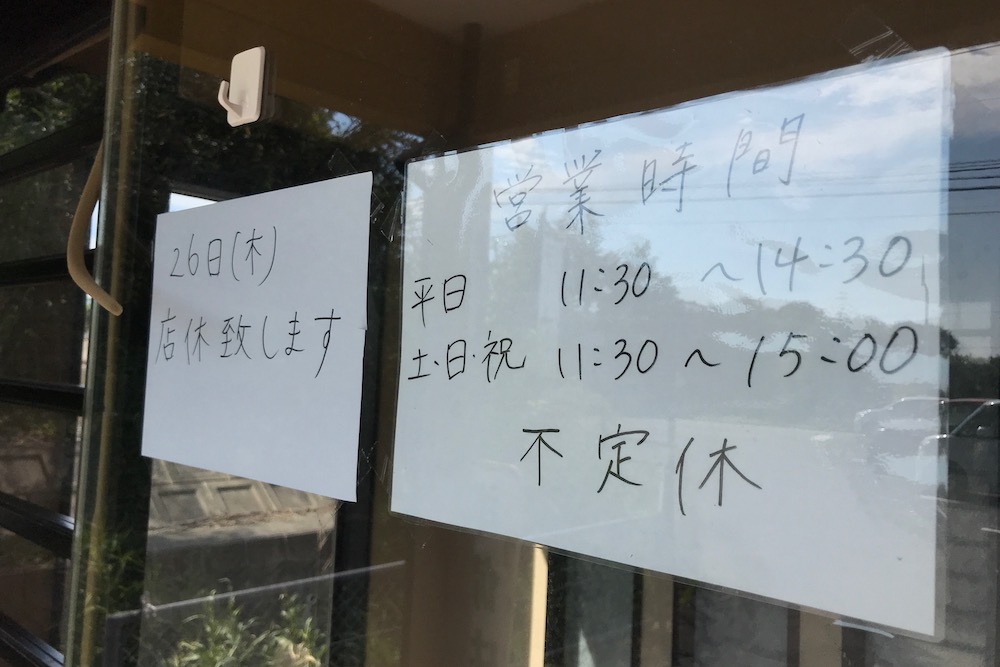 26日(木)
店休致します
営業時間
平日 11:30 ~ 14:30
土·日·祝 11:30 ~ 15:00
不定休